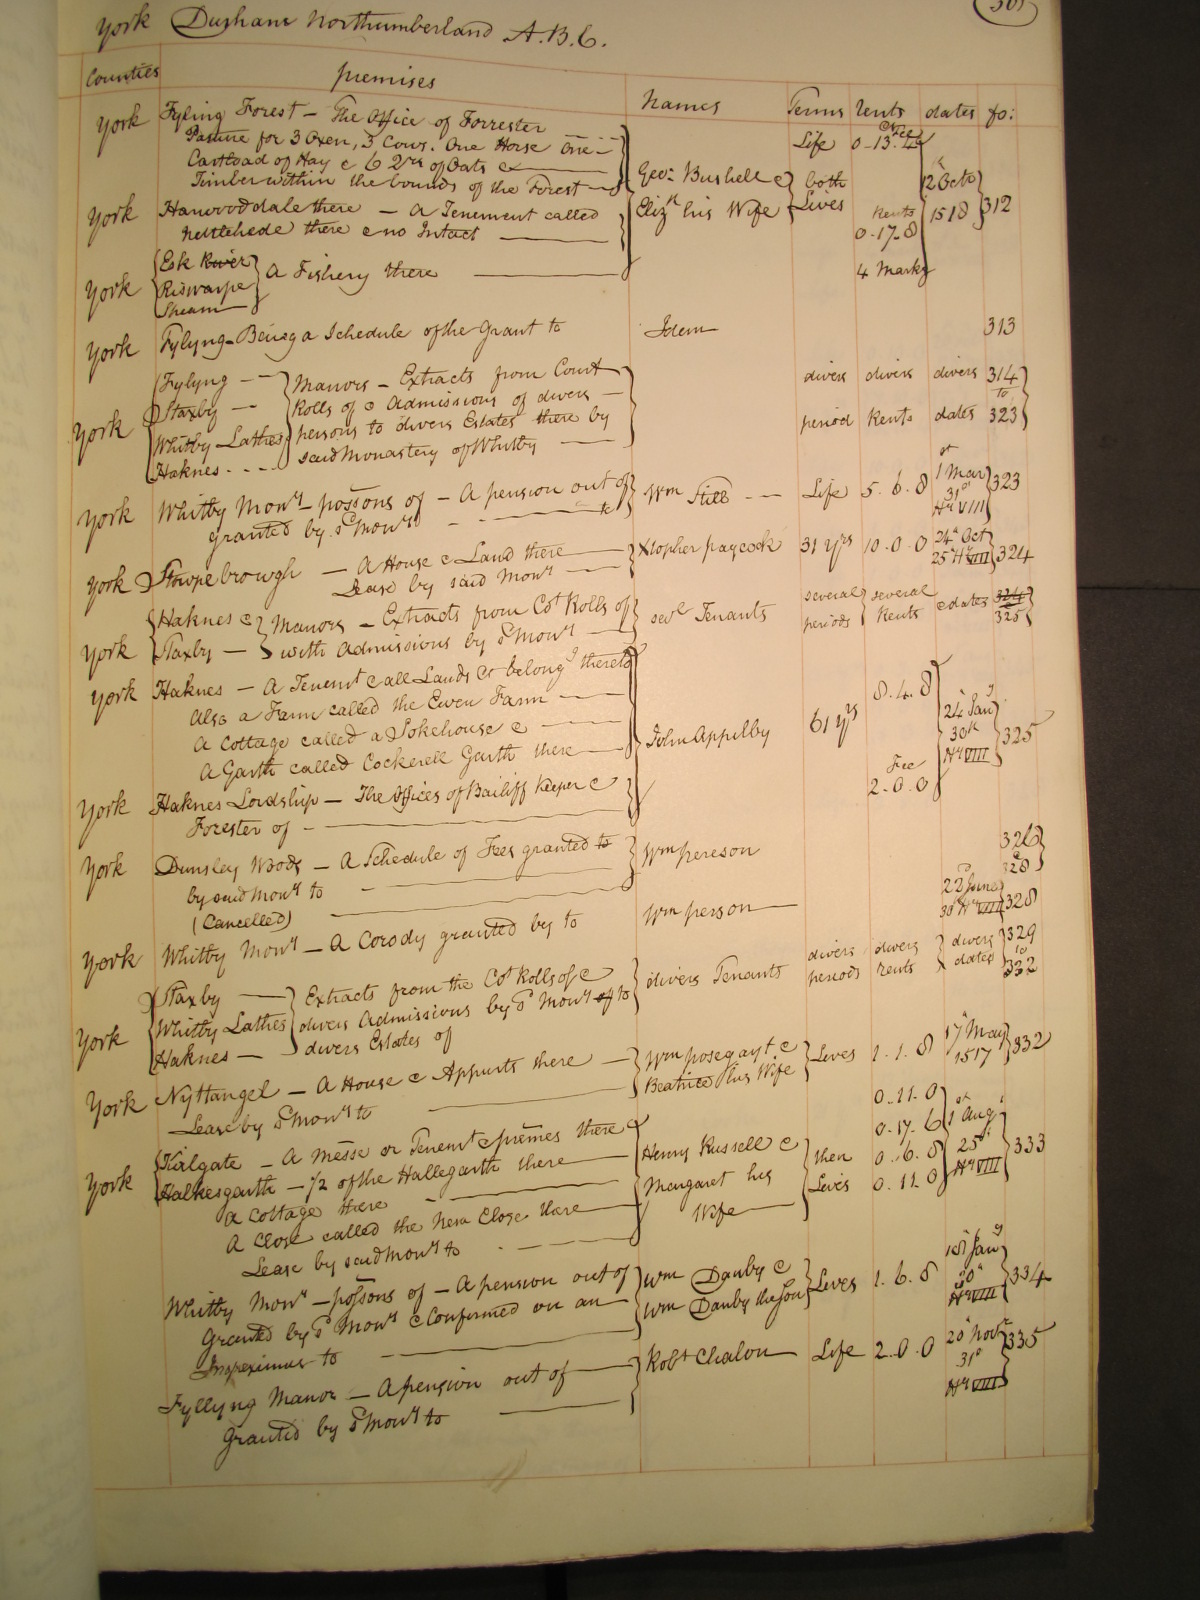 York Durham Northumberland A.B.C. 301
Counties premises Names Terms rents dates fo:
York Fyling Forest — The Office of Forrester
Pasture for 3 Oxen, 3 Cows. One Horse One
Cartload of Hay & 6 Qrs of Oats &
Timber within the bounds of the Forest
Life 0-13-4
Geo: Bushell & both 12 Octo
York Harwooddale there — A Tenement called Eliz th his Wife Lives Rents 1518 312
Nettlehede there & no Intact 0-17-8
York Esk River A Fishery there 4 Marks
Riswarpe
Stream
York Fylyng — Being a Schedule of the Grant to Idem 313
York Fylyng — Manors — Extracts from Court divers divers divers 314
Staxby — Rolls of & Admissions of divers — to
Whitby Lathes persons to divers Estates there by period Rents dates 323
Haknes - - - - said Monastery of Whitby
York Whitby Mony — possons of — A pension out of Wm Still - - Life 5. 6. 8 1st Mar 31o Hy VIII 323
granted by sd Mony to
York Stowpe brough — A House & Land there Xtopher paycock 31 yrs 10. 0. 0 24th Oct 25th Hy VIII 324
Lease by said Mony
York Haknes & Manors — Extracts from Cot Rolls of sevl Tenants several several & dates 324
Staxby — with Admissions by sd Mony periods Rents 325
York Haknes — A Tenemt & all Lands &c belongg thereto 8. 4. 8
Also a Farm called the Ewen Farm
A Cottage called a Sokehouse & John Appilby 61 yrs 24th Jany 30th Hy VIII 325
A Garth called Cockerell Garth there Fee
York Haknes Lordship — The Offices of Bailiff Keeper & 2. 0. 0
Forester of
York Dunsley Woods — A Schedule of Fees granted to Wm pereson 326
by said Mony to & 328
(Cancelled)
York Whitby Mony — A Corody granted by to Wm person 22d June 30th Hy VIII 328
York Staxby — Extracts from the Cot Rolls of & divers Tenants divers divers divers 329
Whitby Lathes divers Admissions by sd Mony of to periods rents dates to
Haknes — divers Estates of 332
York Nyttangel — A House & Appurts there Wm posegayt & Lives 1. 1. 8 17th May 332
Lease by sd Mony to Beatrice his Wife 1517
York Kirlgate — A Messe or Tenemt & premes there Henry Russell & their 0. 11. 0 1st Aug
Halkesgarth — 1/2 of the Hallegarth there Margaret his Lives 0. 17. 6 25th 333
A Cottage there Wife 0. 6. 8 Hy VIII
A Close called the New Close there 0. 11. 0
Lease by said Mony to
Whitby Mony — possons of — A pension out of Wm Danby & Lives 1. 6. 8 18th Jany 334
Granted by sd Mony & Confirmed on an Wm Danby the Son 30th Hy VIII
Inspeximus to
Fyllyng Manor — A pension out of Robt Chalon Life 2. 0. 0 20th Novr 31o Hy VIII 335
Granted by sd Mony to